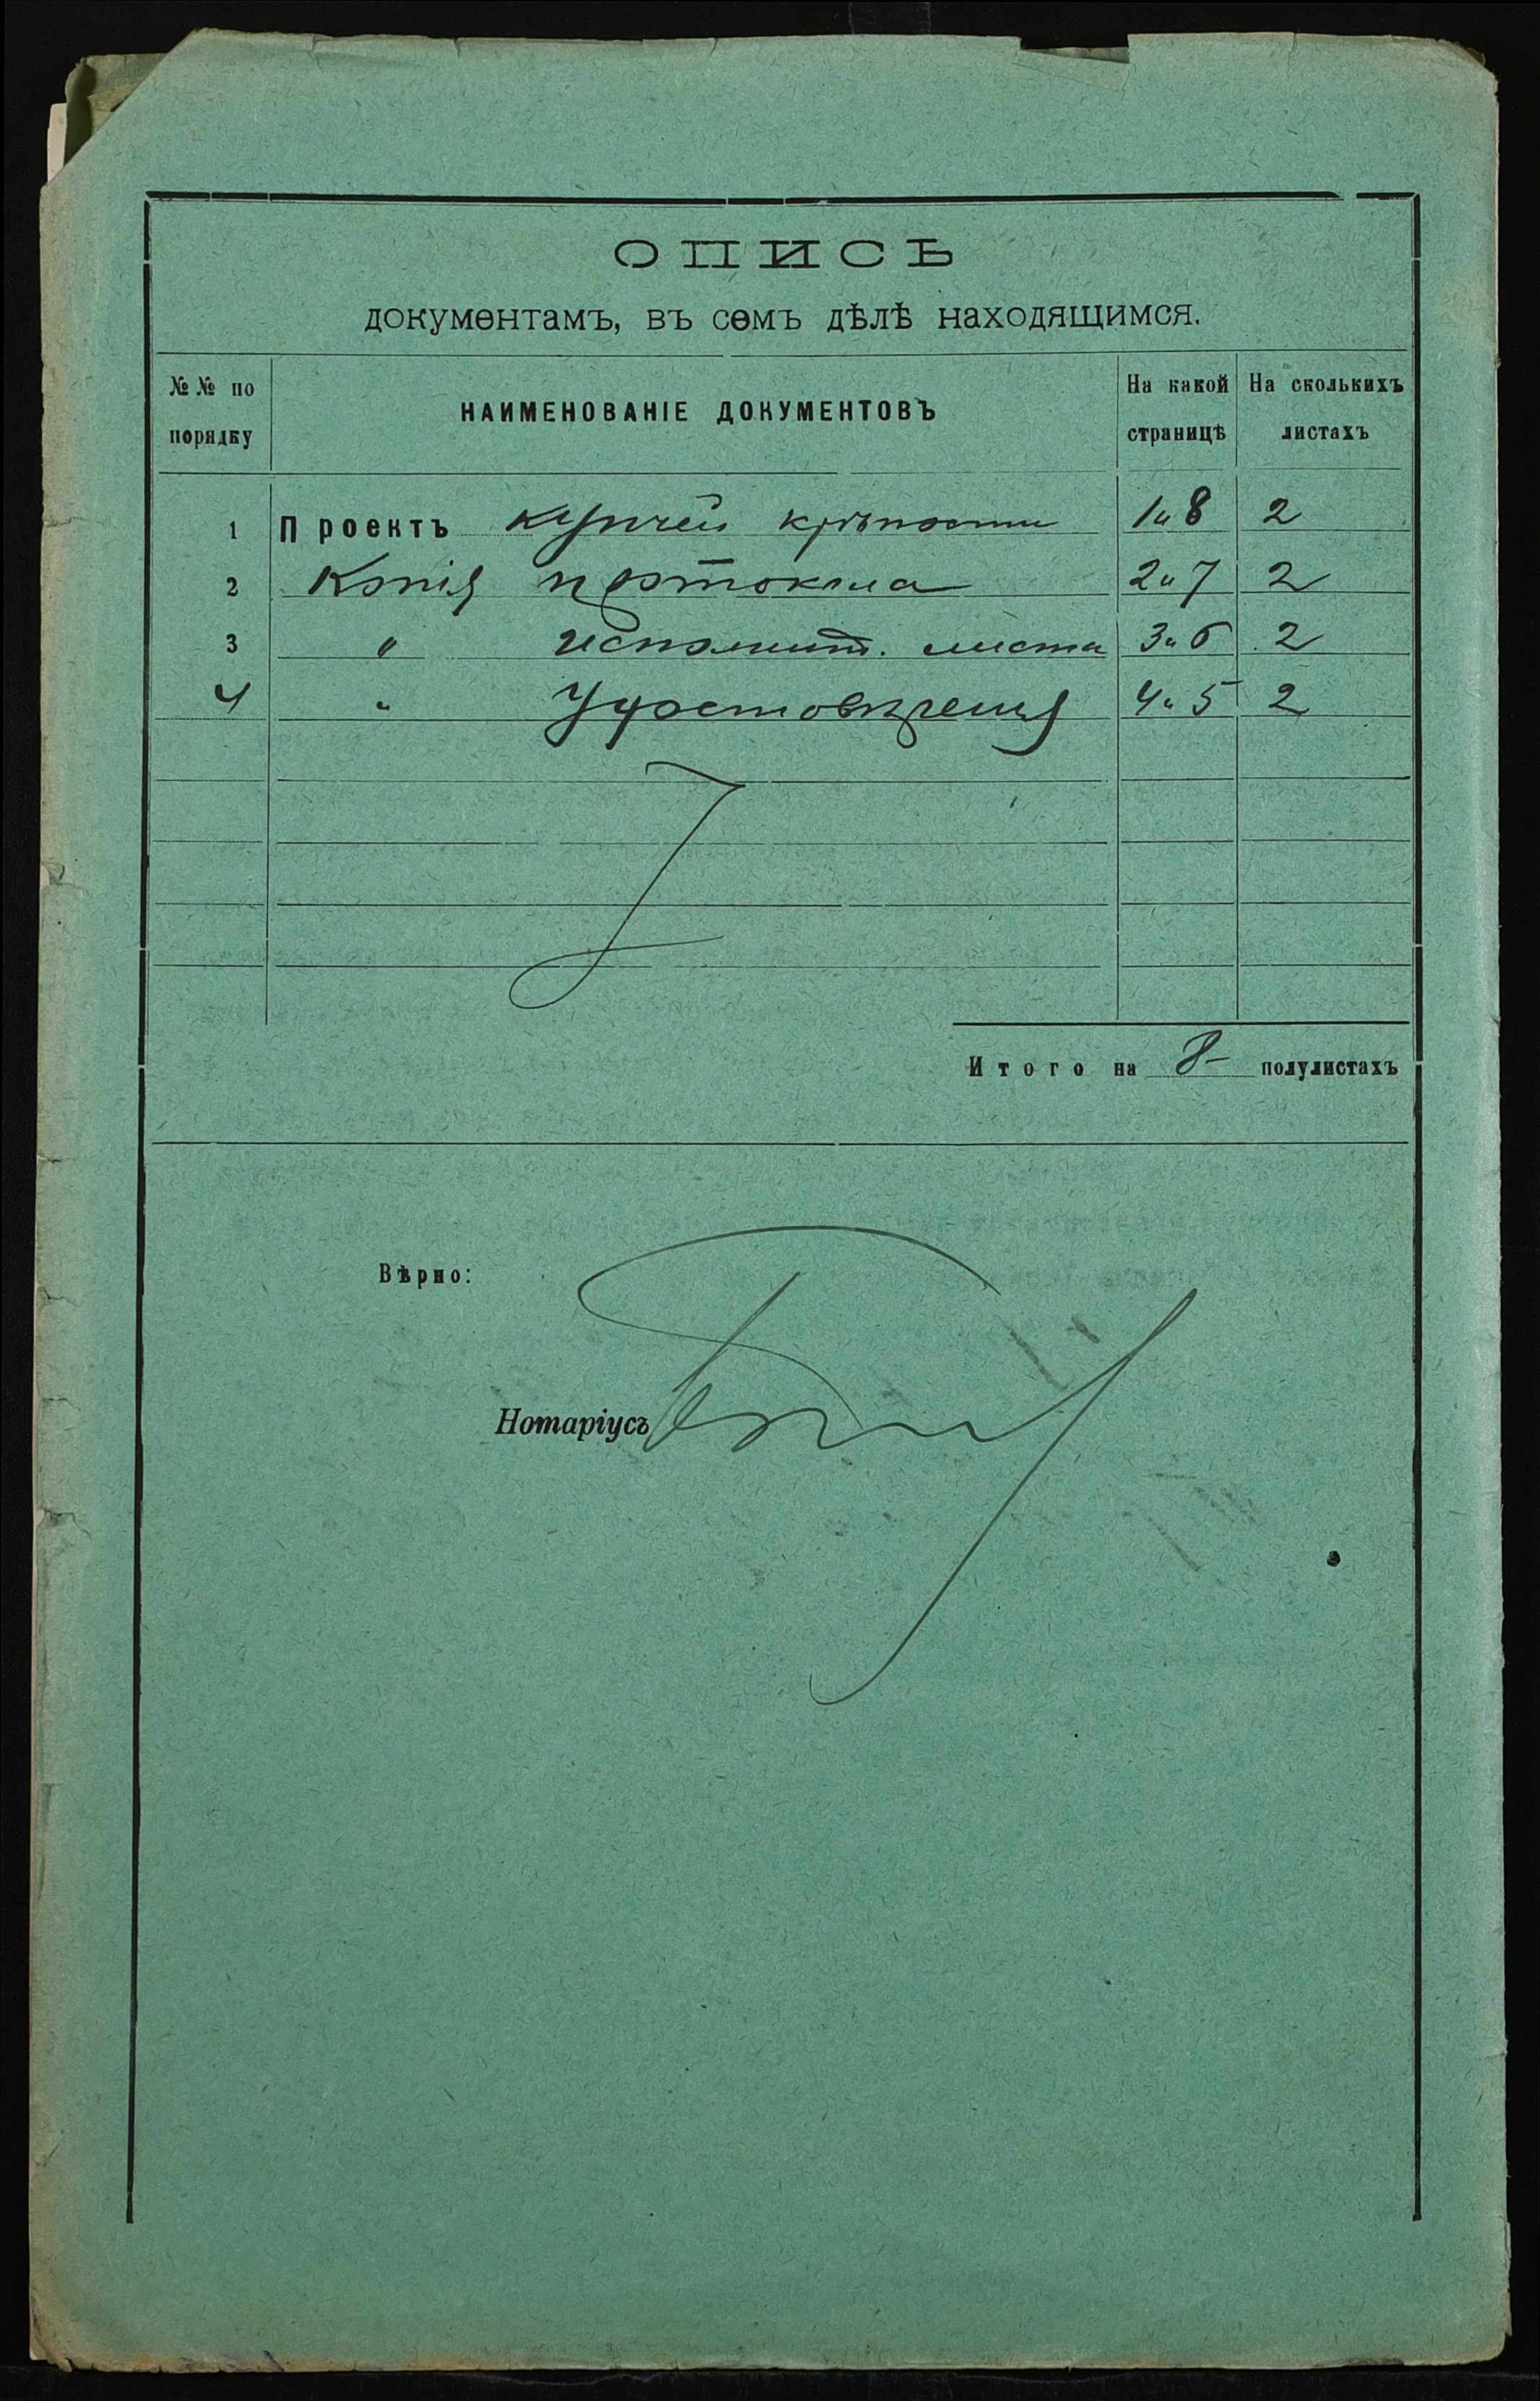 ОПИСЬ
документамъ, въ семъ дѣлѣ находящимся.
№№ по порядку НАИМЕНОВАНІЕ ДОКУМЕНТОВЪ На какой страницѣ На сколькихъ листахъ
1 Проектъ купчей крѣпости 1 и 8 2
2 Копія протокола 2 и 7 2
3 " исполнит. листа 3 и 6 2
4 " Удостовѣренія 4 и 5 2
Итого на 8- полулистахъ
Вѣрно:
Нотаріусъ